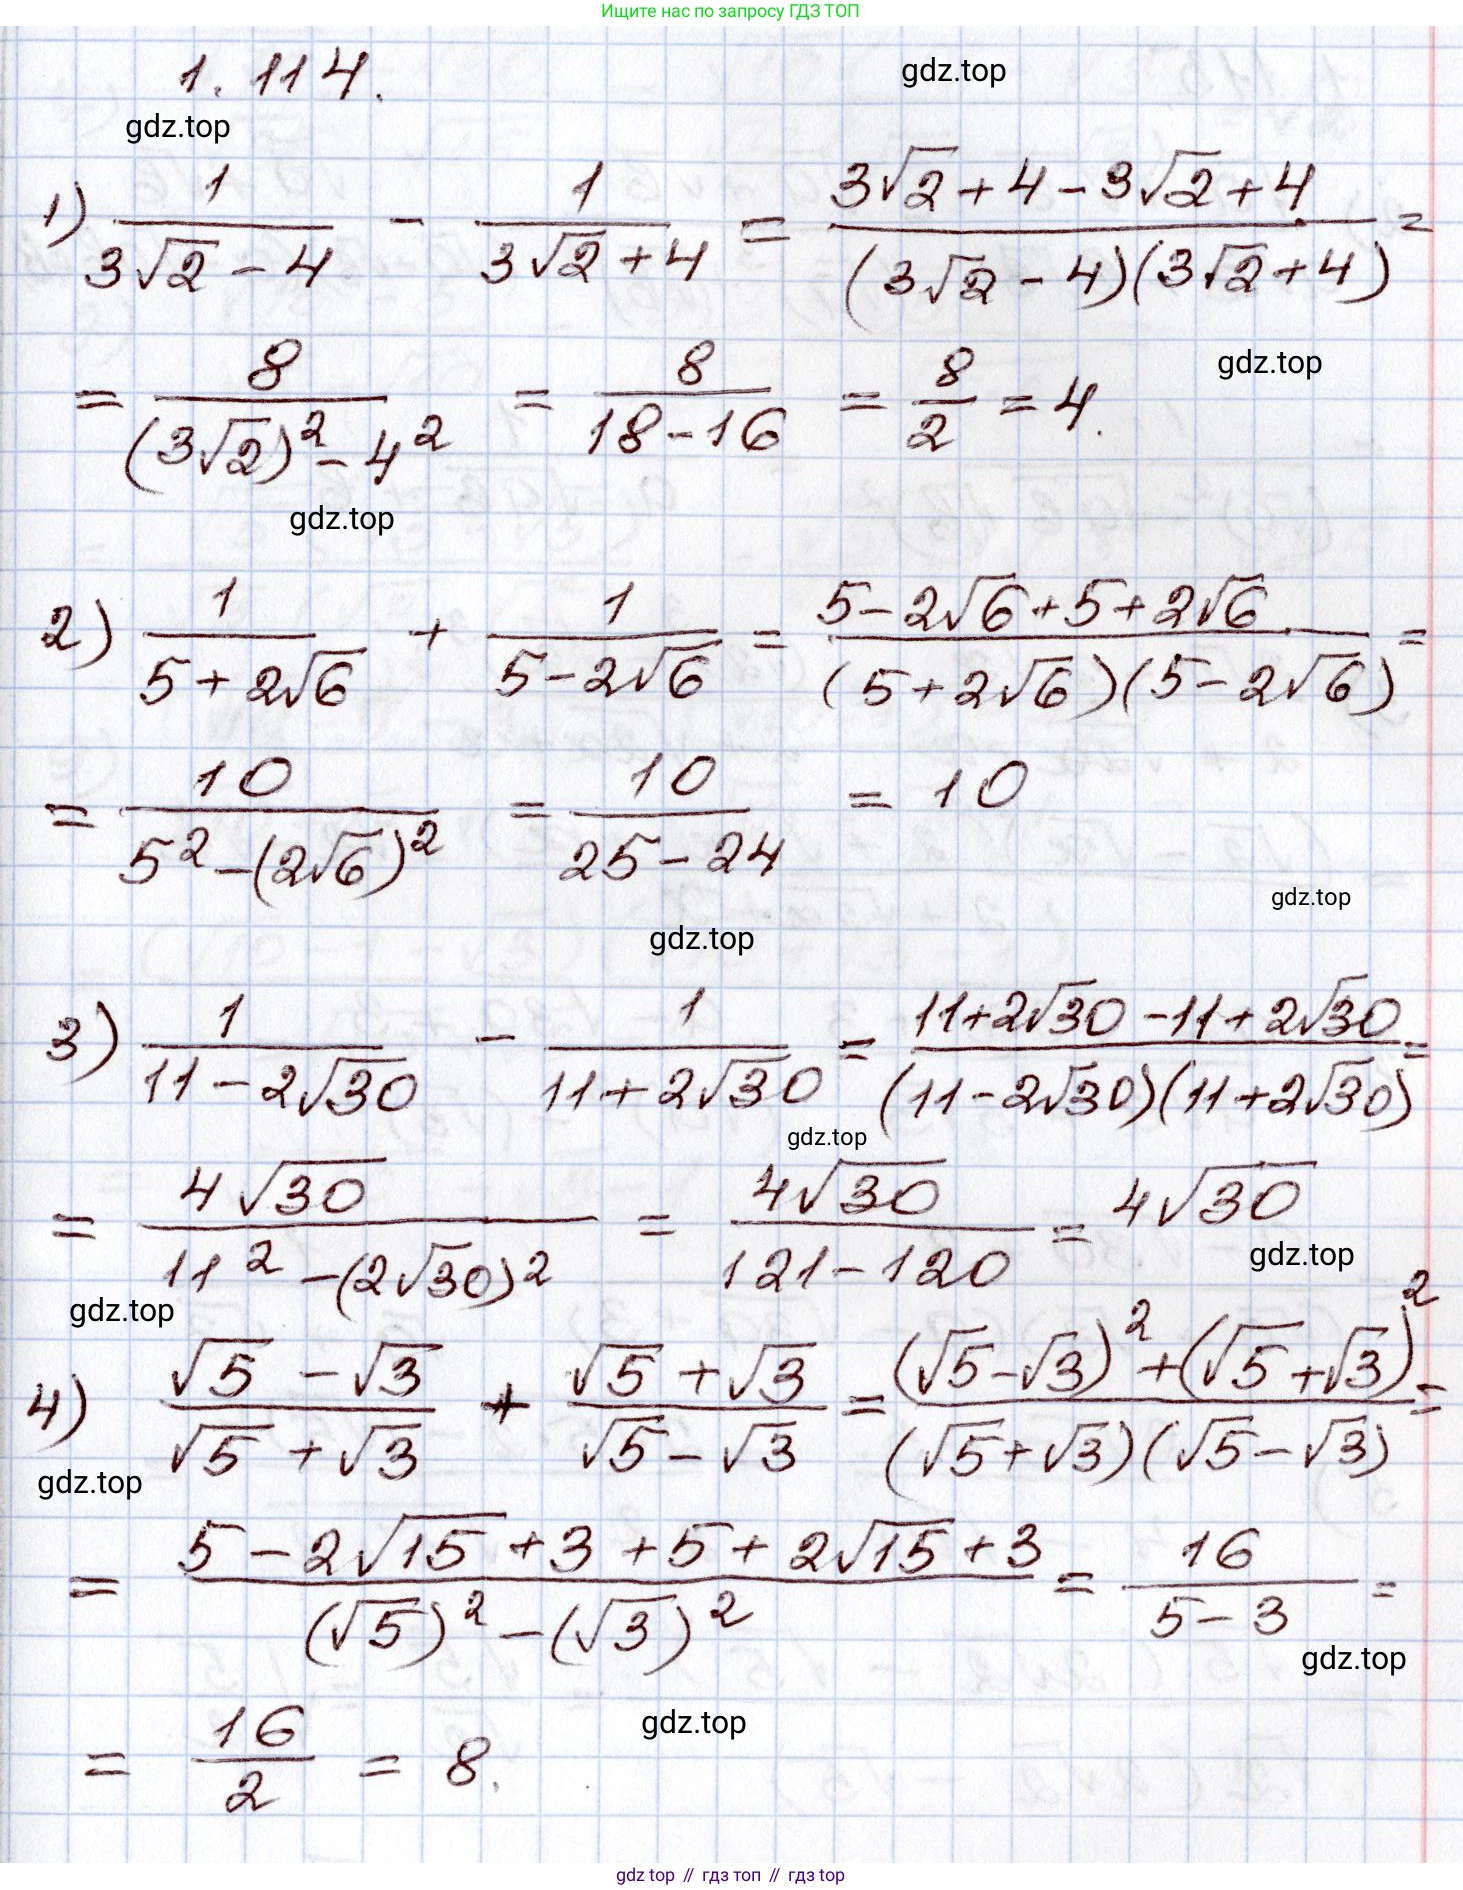 Ищите нас по запросу ГДЗ ТОП
1.114.
gdz.top
gdz.top
1) 1/(3√2 - 4) - 1/(3√2 + 4) = (3√2 + 4 - 3√2 + 4)/((3√2 - 4)(3√2 + 4)) =
= 8/((3√2)² - 4²) = 8/(18 - 16) = 8/2 = 4.
gdz.top
gdz.top
2) 1/(5 + 2√6) + 1/(5 - 2√6) = (5 - 2√6 + 5 + 2√6)/((5 + 2√6)(5 - 2√6)) =
= 10/(5² - (2√6)²) = 10/(25 - 24) = 10
gdz.top
gdz.top
3) 1/(11 - 2√30) - 1/(11 + 2√30) = (11 + 2√30 - 11 + 2√30)/((11 - 2√30)(11 + 2√30)) =
gdz.top
= 4√30/(11² - (2√30)²) = 4√30/(121 - 120) = 4√30
gdz.top
gdz.top
4) (√5 - √3)/(√5 + √3) + (√5 + √3)/(√5 - √3) = ((√5 - √3)² + (√5 + √3)²)/((√5 + √3)(√5 - √3)) =
gdz.top
= (5 - 2√15 + 3 + 5 + 2√15 + 3)/((√5)² - (√3)²) = 16/(5 - 3) =
gdz.top
gdz.top
= 16/2 = 8.
gdz top // гдз топ // гдз top